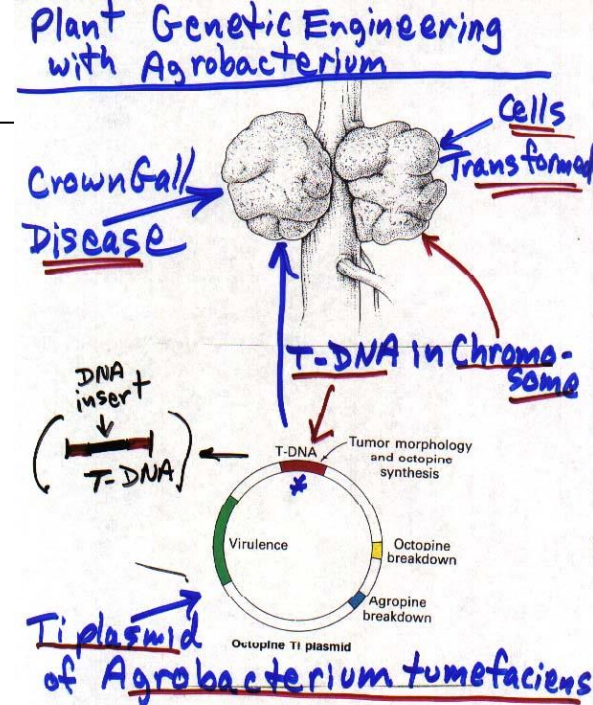 Plant Genetic Engineering
with Agrobacterium
Cells
Transformed
Crown Gall
Disease
T-DNA in Chromo-
some
DNA
insert
T-DNA
T-DNA
Tumor morphology
and octopine
synthesis
*
Virulence
Octopine
breakdown
Agropine
breakdown
Octopine Ti plasmid
Ti plasmid
of Agrobacterium tumefaciens